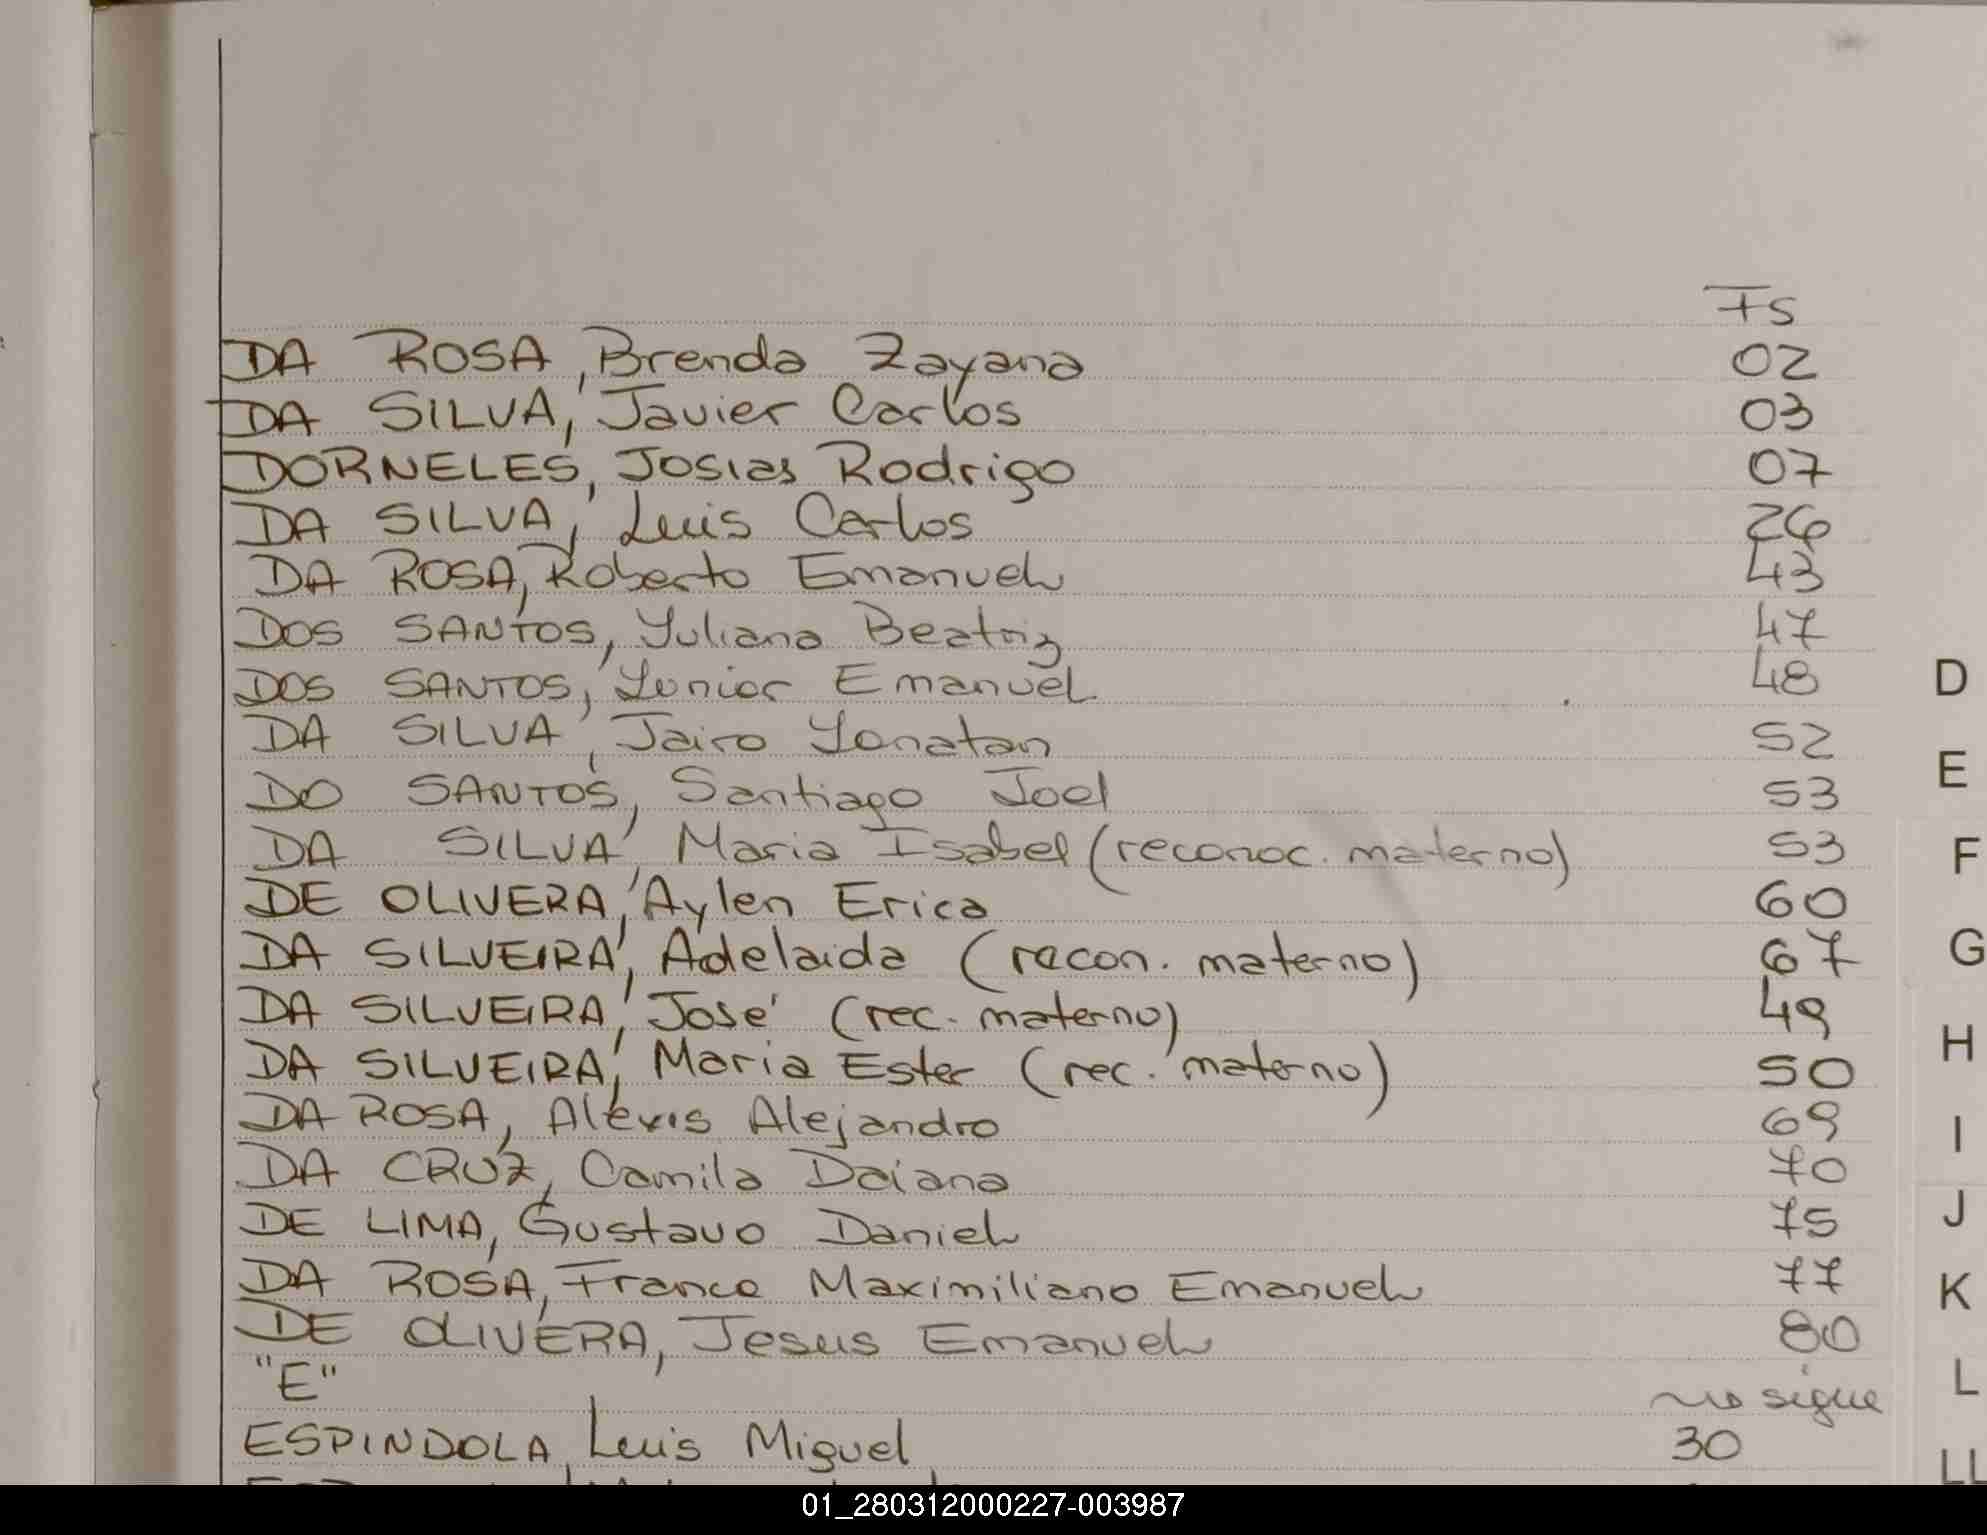 Fs
DA ROSA, Brenda Zayana 02
DA SILVA, Javier Carlos 03
DORNELES, Josias Rodrigo 07
DA SILVA, Luis Carlos 26
DA ROSA, Roberto Emanuel 43
DOS SANTOS, Yuliana Beatriz 47
DOS SANTOS, Yunior Emanuel 48
DA SILVA, Jairo Yonatan 52
DO SANTOS, Santiago Joel 53
DA SILVA, Maria Isabel (reconoc. materno) 53
DE OLIVERA, Aylen Erica 60
DA SILVEIRA, Adelaida (recon. materno) 67
DA SILVEIRA, José (rec. materno) 49
DA SILVEIRA, Maria Ester (rec. materno) 50
DA ROSA, Alexis Alejandro 69
DA CRUZ, Camila Daiana 70
DE LIMA, Gustavo Daniel 75
DA ROSA, Franco Maximiliano Emanuel 77
DE OLIVERA, Jesus Emanuel 80
"E" no sigue
ESPINDOLA, Luis Miguel 30
D
E
F
G
H
I
J
K
L
LL
01_280312000227-003987